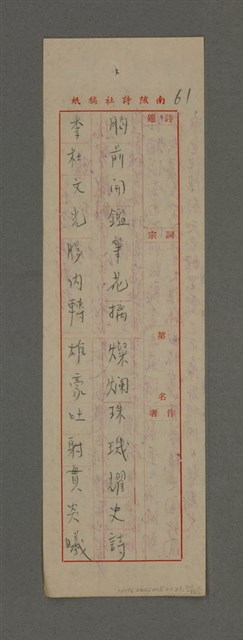 南陔詩社稿紙
61
詩題
詞宗
第
名
作者
胸前開鑑筆花摛燦斕珠璣耀史詩
李杜文光勝內轉雄豪吐射貫炎曦